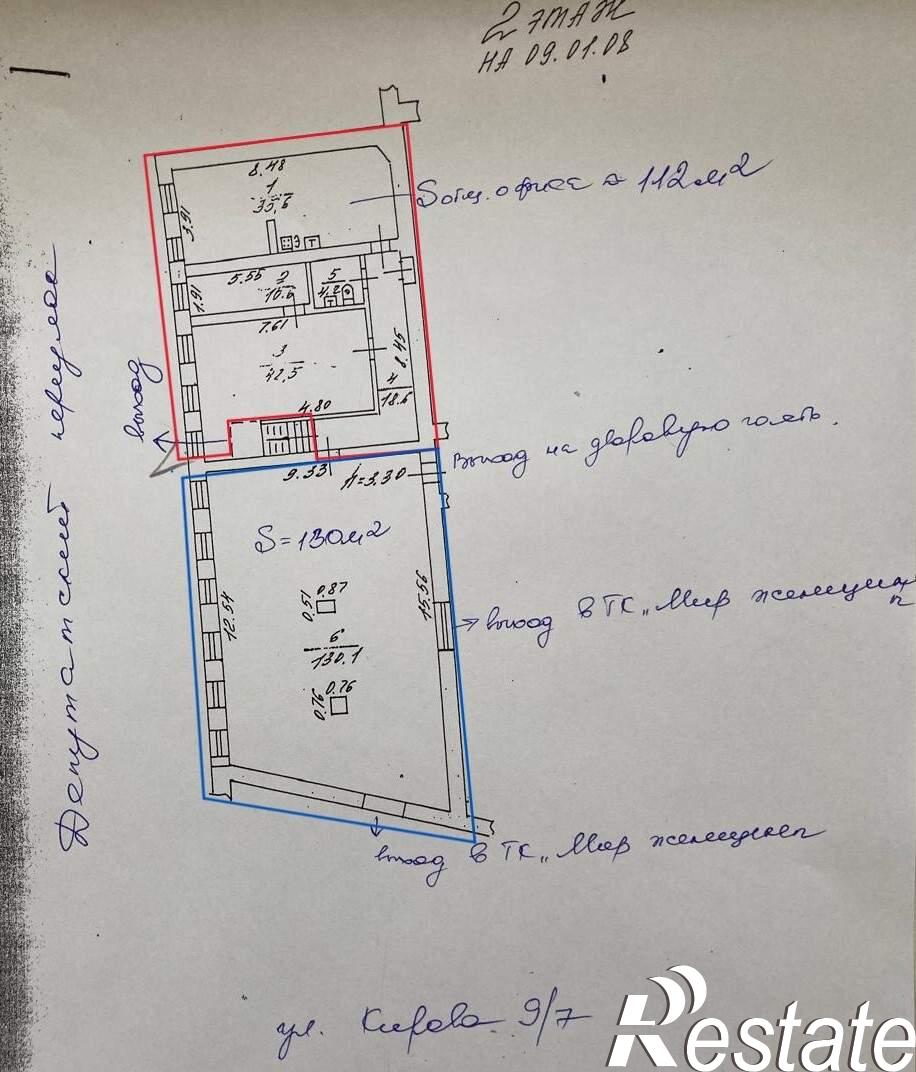 2 ЭТАЖ
НА 09.01.08
8.48
1
33,6
3.91
Э
Т
Sобщ. офиса ≈ 112 м2
5.55
2
10.6
5
4.2
Т
1.91
7.61
3
42,5
8.45
4
18.6
4.80
выход
Депутатский переулок
9.33
h=3.30
Выход на дворовую часть.
S=130м2
0.51
0.87
12.54
15.56
6
130.1
0.76
0.76
выход в ТК „Мир женщин
выход в ТК „Мир женщины
ул. Кирова 9/7
Restate